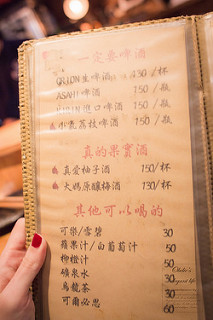 一定要啤酒
ORION生啤酒 130/杯
ASAHI啤酒 150/瓶
KIRIN進口啤酒 150/瓶
小惠荔枝啤酒 150/瓶
真的果實酒
真愛柚子酒 150/杯
大媽原釀梅酒 130/杯
其他可以喝的
可樂/雪碧 30
蘋果汁/白葡萄汁 50
柳橙汁 50
礦泉水 30
烏龍茶 30
可爾必思 60